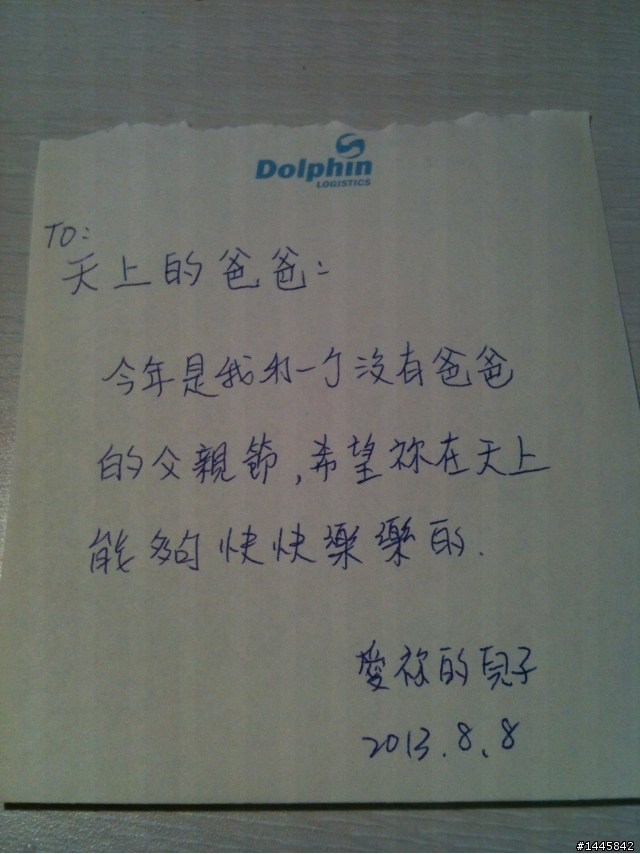 Dolphin
LOGISTICS
TO:
天上的爸爸:
今年是我第一個沒有爸爸
的父親節,希望祢在天上
能夠快快樂樂的.
愛祢的兒子
2013.8.8
#1445842